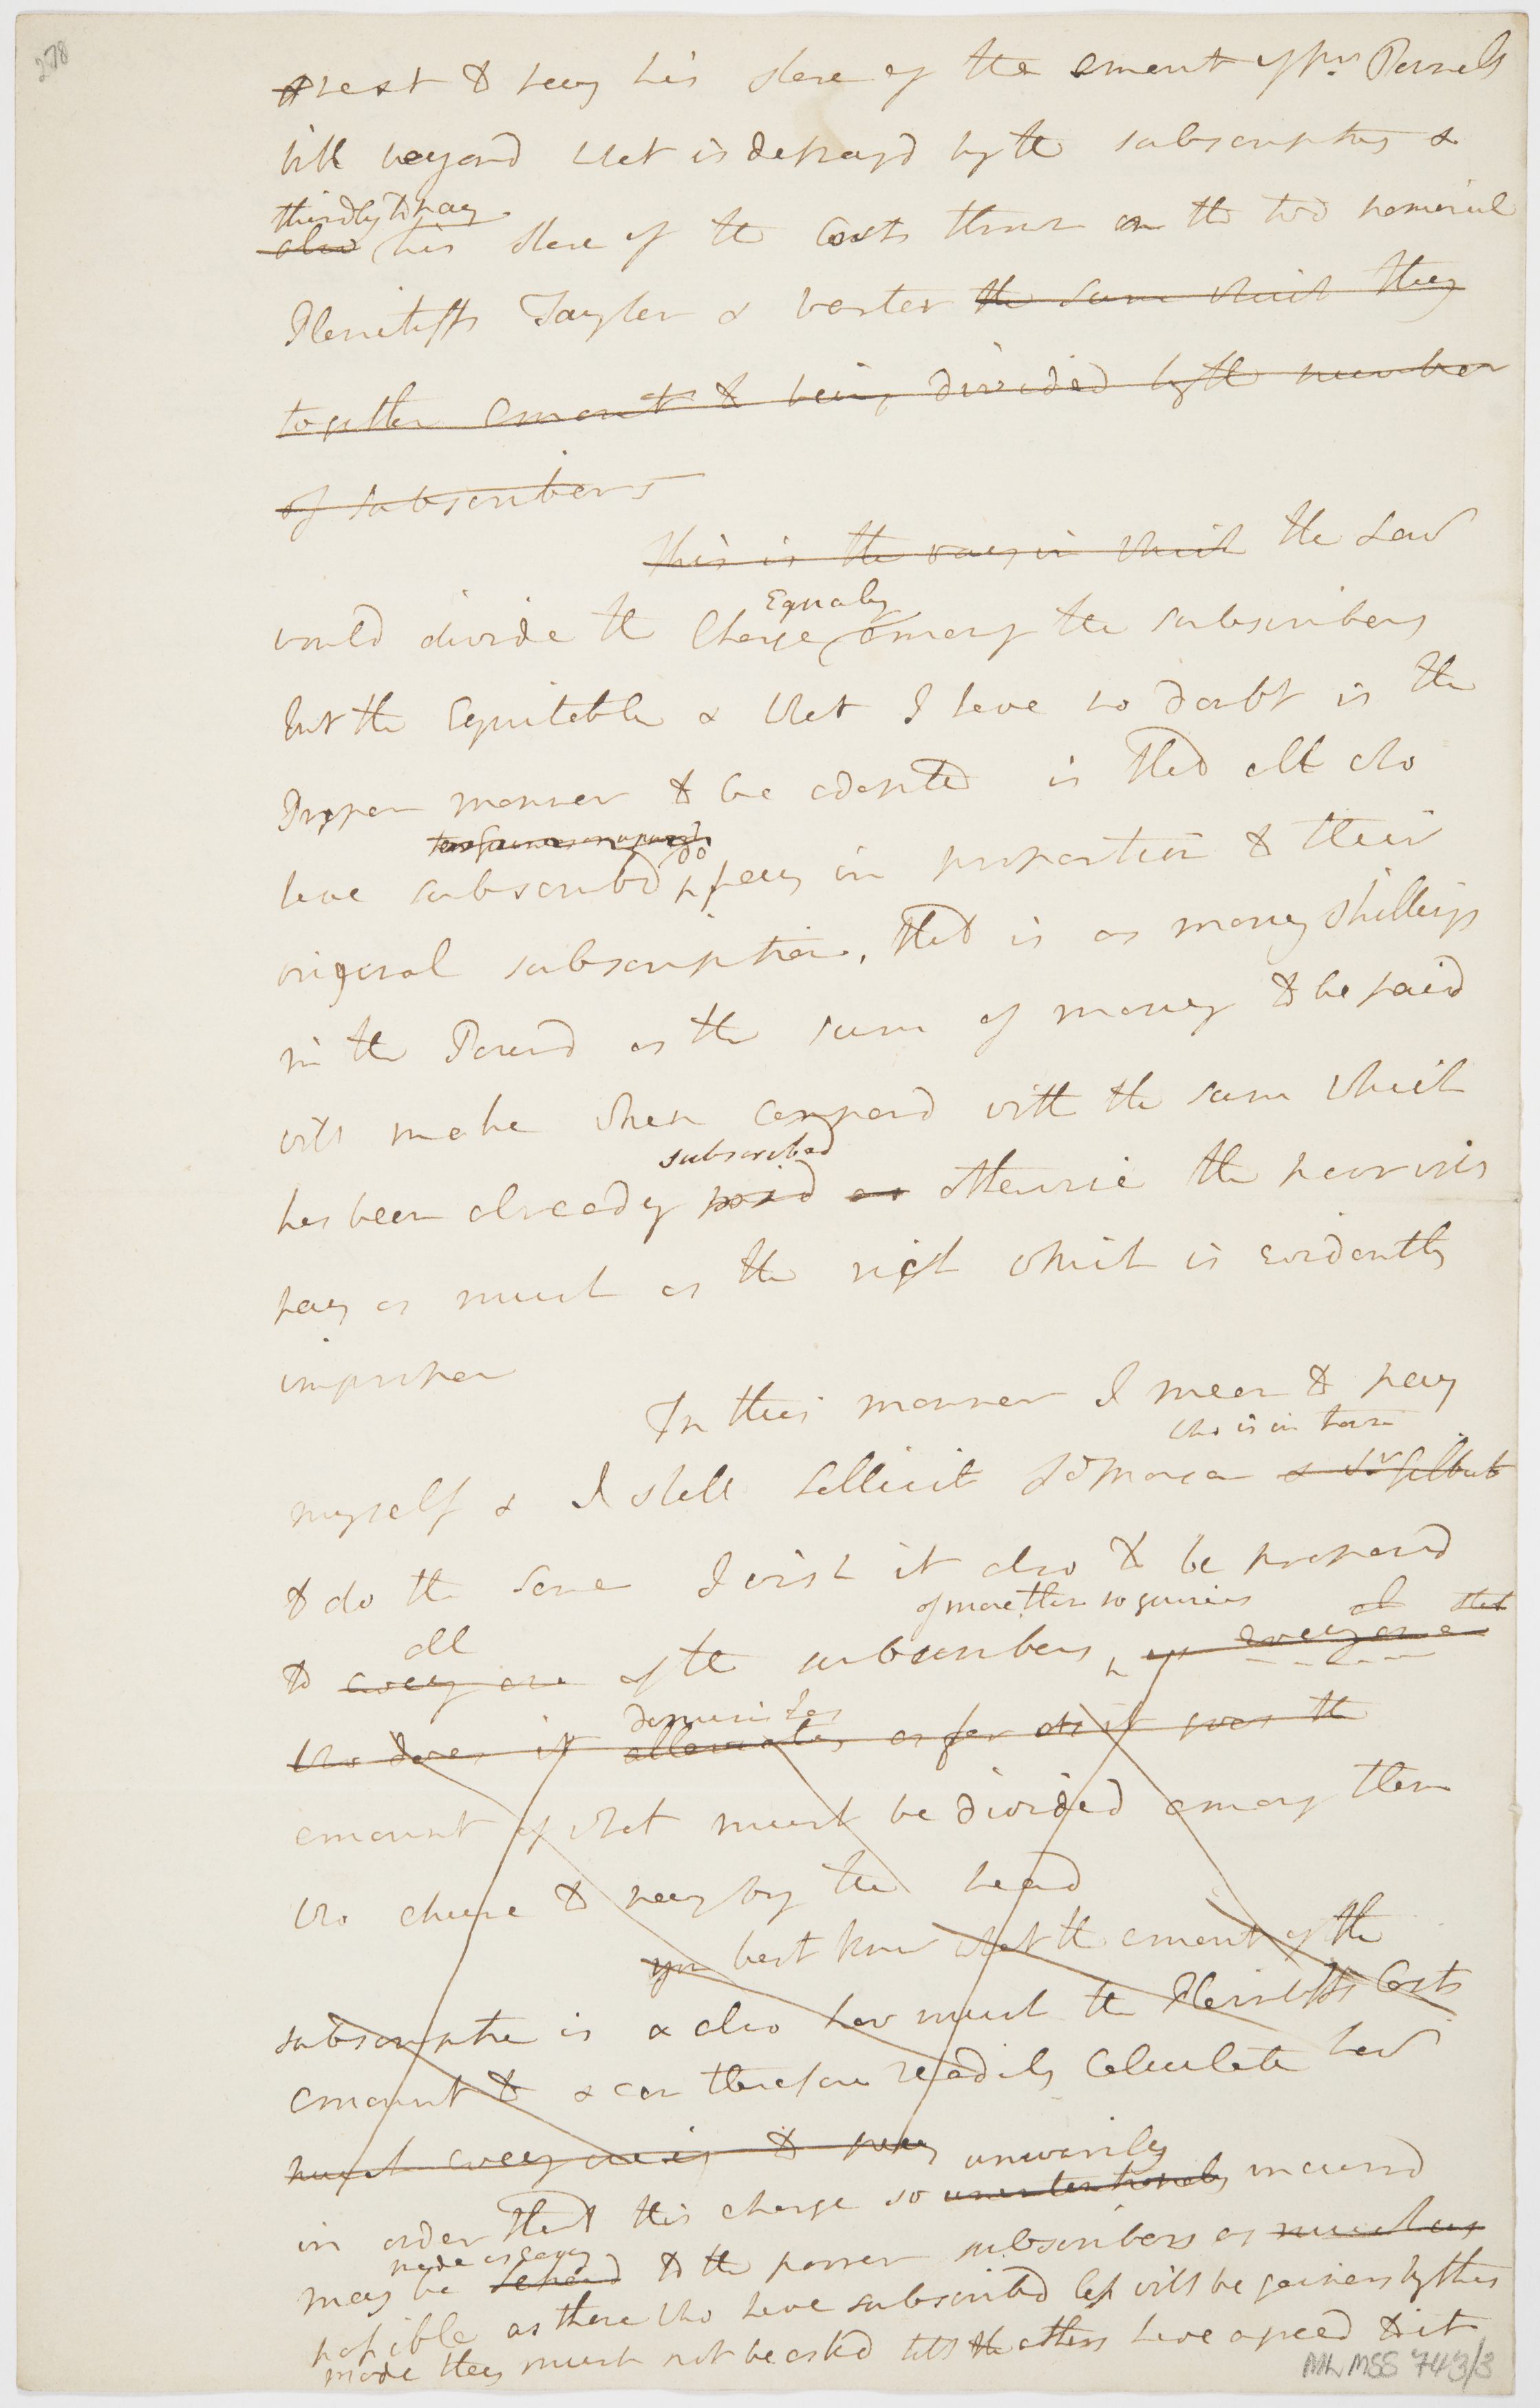 278
rest & pay his share of the amount of Mr Parnels
bill beyond what is defrayd by the subscription &
thirdly to pay
also his share of the Costs thrown on the two nominal
Plaintiffs Tayler & baxter the sum which they
together amount to being divided by the number
of subscribers
this is the way in which the Law
Equaly
would divide the Charge among the subscribers
but the Equitable & what I have no doubt is the
Proper manner to be adopted is that all who
do
have subscribd pay in proportion to their
original subscription, that is as many shillings
in the Pound as the sum of money to be paid
will make when compard with the sum which
subscribed
has been already paid as otherwise the poor will
pay as much as the rich which is evidently
improper
In this manner I mean to pay
who is in town
myself & I shall sollicit Ld Moreton & Sr Gilbert
to do the same I wish it also to be proposd
of more than 10 guineas
all
to every one of the subscribers, as every one
diminishes
who does it alleviates as far as it goes the
amount of what must be divided among them
who chuse to pay by the head
you best know what the amount of the
subscription is & also how much the Plaintiffs Costs
amount to & can therefore readily Calculate how
much every one is to pay
unwarily
in order that this charge so unintentionaly incurrd
made as easy
may be to the poorer subscribers as much as
possible as those who have subscribd less will be gainers by this
mode they must not be askd till the others have agreed to it
ML MSS 743/3